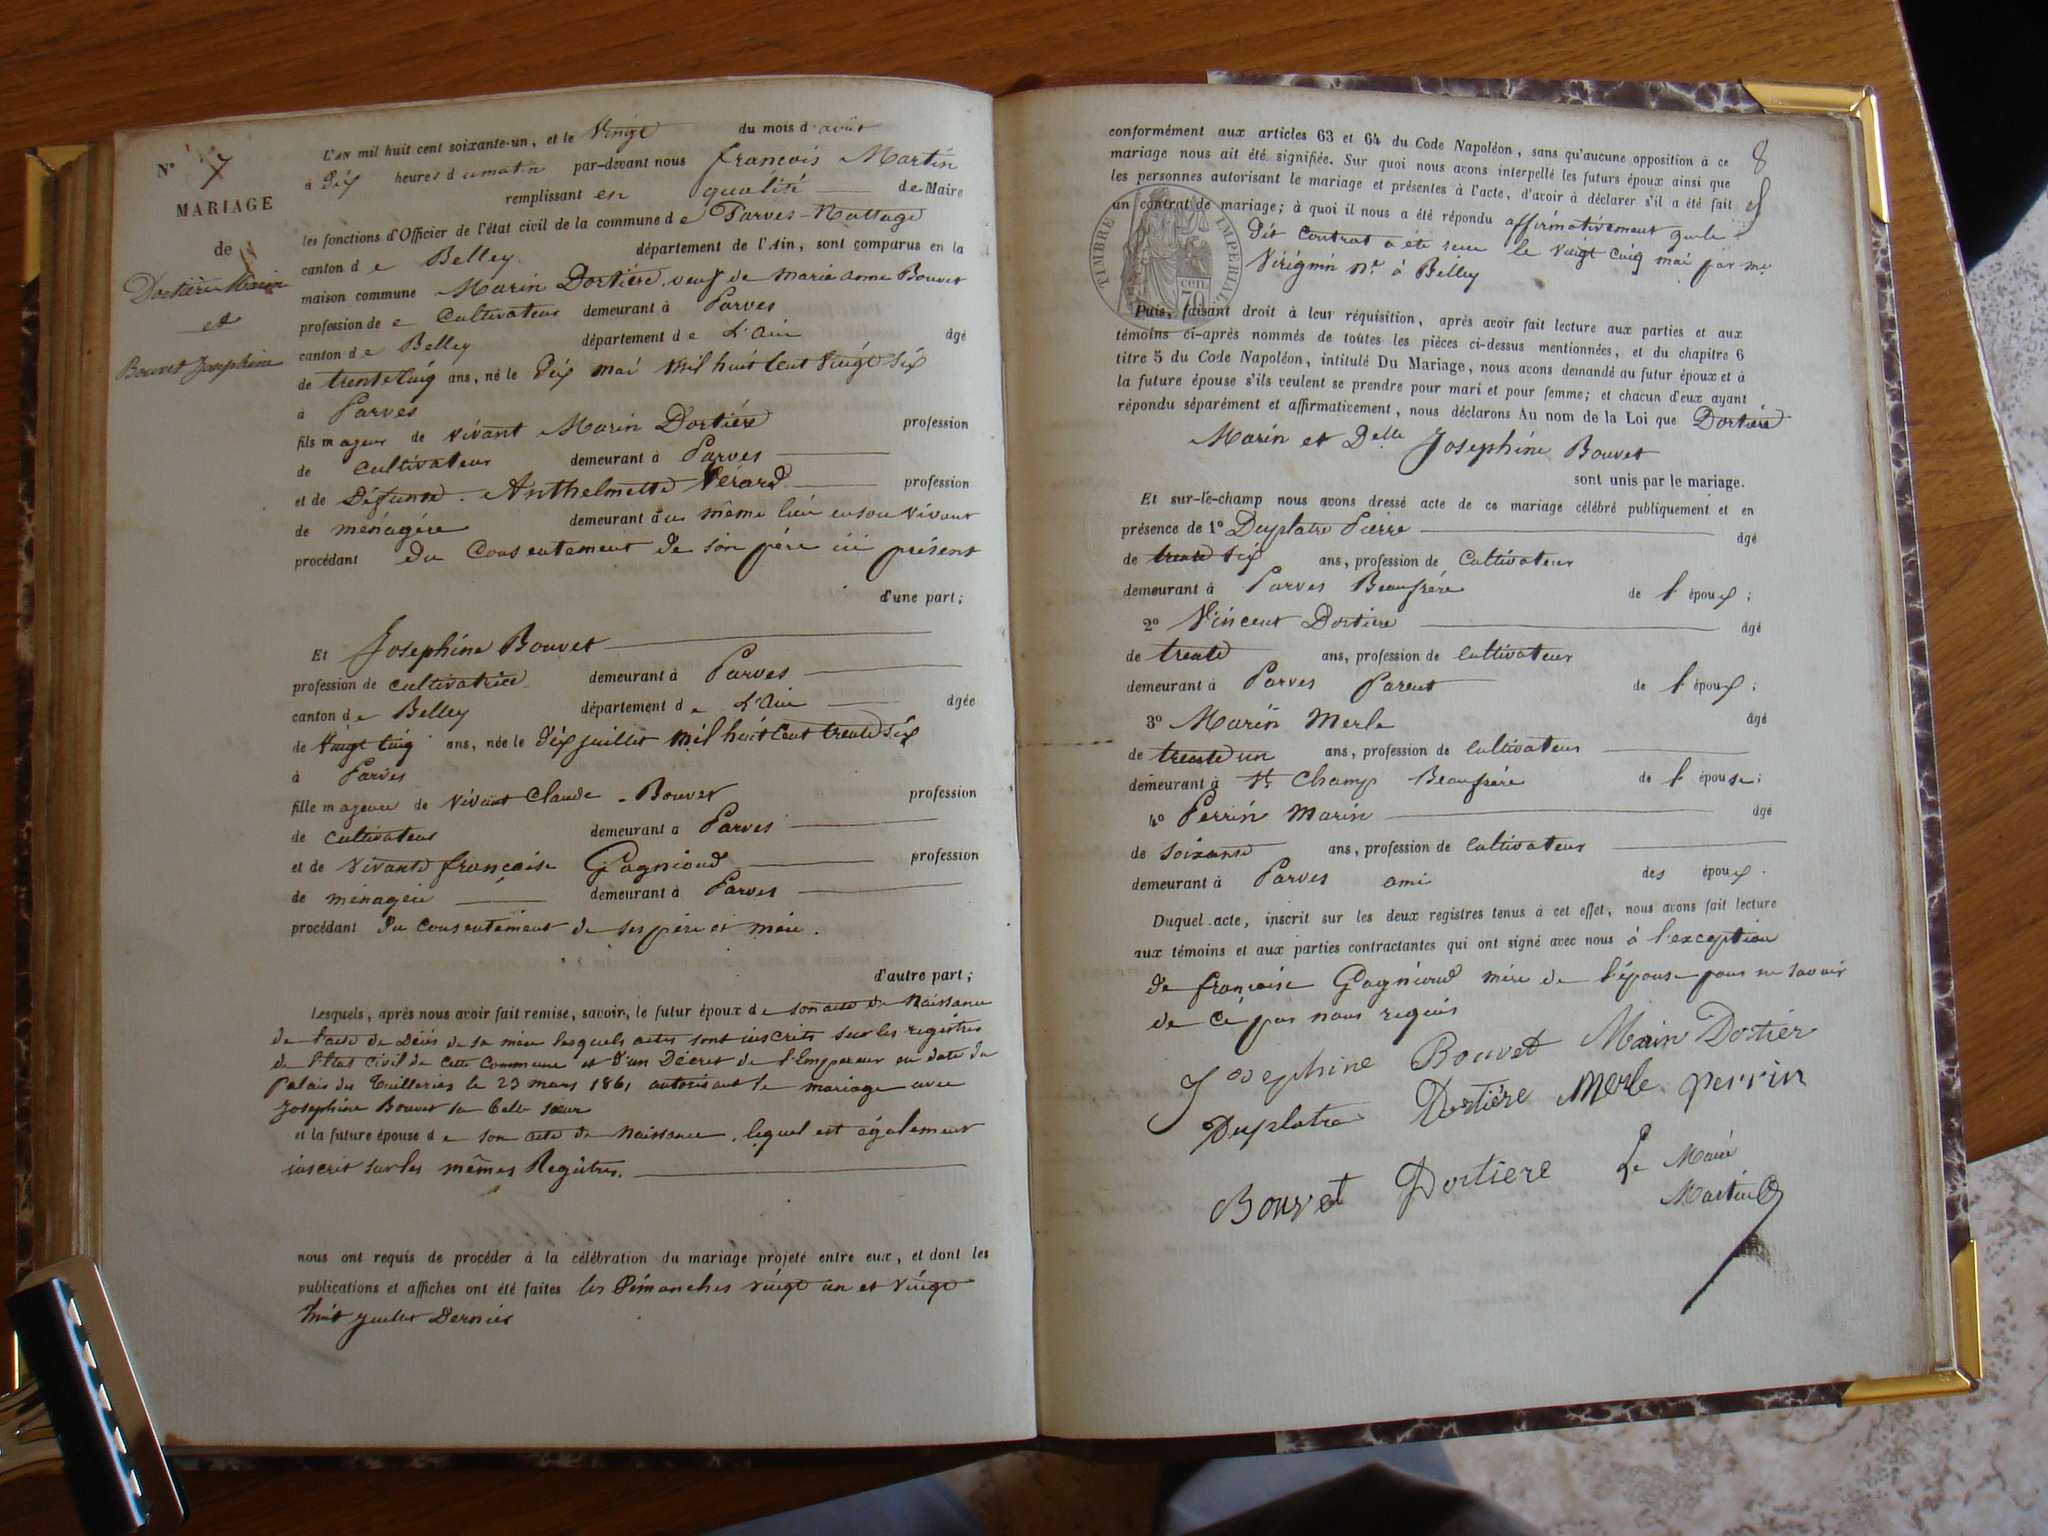 N° 7
MARIAGE
de
Dortière Marin
et
Bouvet Josephine
L'AN mil huit cent soixante-un, et le Vingt du mois d'août
à Dix heures du matin par-devant nous françois Martin
remplissant en qualité de Maire
les fonctions d'Officier de l'état civil de la commune de Parves-Nattage
canton de Belley département de l'Ain, sont comparus en la
maison commune Marin Dortière, veuf de marie anne Bouvet
profession de Cultivateur demeurant à Parves
canton de Belley département de L'Ain âgé
de trente Cinq ans, né le Dix mai Mil huit Cent Vingt Six
à Parves
fils majeur de vivant Marin Dortière profession
de Cultivateur demeurant à Parves
et de Défunte Anthelmette Vérard profession
de ménagère demeurant au même lieu en son vivant
procédant du Consentement de son père ici présent
d'une part;
Et Josephine Bouvet
profession de cultivatrice demeurant à Parves
canton de Belley département de L'Ain âgée
de Vingt Cinq ans, née le Dix juillet Mil huit Cent trente Six
à Parves
fille majeure de vivant Claude Bouvet profession
de cultivateur demeurant à Parves
et de vivante françoise Gagnioud profession
de ménagère demeurant à Parves
procédant du Consentement de ses père et mère.
d'autre part;
Lesquels, après nous avoir fait remise, savoir, le futur époux de son acte de Naissance
de l'acte de Décès de sa mère lesquels actes sont inscrits sur les registres
de l'Etat Civil de cette Commune et d'un Décret de l'Empereur en date du
palais des Tuilleries le 23 mars 1861 autorisant le mariage avec
Josephine Bouvet sa belle sœur
et la future épouse de son acte de Naissance, lequel est également
inscrit sur les mêmes Registres.
nous ont requis de procéder à la célébration du mariage projeté entre eux, et dont les
publications et affiches ont été faites les Dimanches vingt un et vingt
huit juillet Dernier
8
conformément aux articles 63 et 64 du Code Napoléon, sans qu'aucune opposition à ce
mariage nous ait été signifiée. Sur quoi nous avons interpellé les futurs époux ainsi que
les personnes autorisant le mariage et présentes à l'acte, d'avoir à déclarer s'il a été fait
un contrat de mariage; à quoi il nous a été répondu affirmativement que le
dit Contrat a été reçu le vingt Cinq mai par me
Virignin ne à Belley
TIMBRE IMPERIAL
CEN 70
Puis, faisant droit à leur réquisition, après avoir fait lecture aux parties et aux
témoins ci-après nommés de toutes les pièces ci-dessus mentionnées, et du chapitre 6
titre 5 du Code Napoléon, intitulé Du Mariage, nous avons demandé au futur époux et à
la future épouse s'ils veulent se prendre pour mari et pour femme; et chacun d'eux ayant
répondu séparément et affirmativement, nous déclarons Au nom de la Loi que Dortière
Marin et Delle Josephine Bouvet
sont unis par le mariage.
Et sur-le-champ nous avons dressé acte de ce mariage célébré publiquement et en
présence de 1° Duplatre Pierre âgé
de trente Six ans, profession de Cultivateur
demeurant à Parves Beaufrère de l'époux;
2° Vincent Dortière âgé
de trente ans, profession de Cultivateur
demeurant à Parves Parent de l'époux;
3° Marin Merle âgé
de trente un ans, profession de Cultivateur
demeurant à St Champ Beaufrère de l'épouse;
4° Perrin Marin âgé
de soixante ans, profession de Cultivateur
demeurant à Parves ami des époux.
Duquel acte, inscrit sur les deux registres tenus à cet effet, nous avons fait lecture
aux témoins et aux parties contractantes qui ont signé avec nous à l'exception
de françoise Gagnioud mère de l'épouse pour ne savoir
de ce par nous requis
Josephine Bouvet Marin Dortier
Duplatre Dortière Merle perrin
Bouvet Dortiere Le Maire
Martin